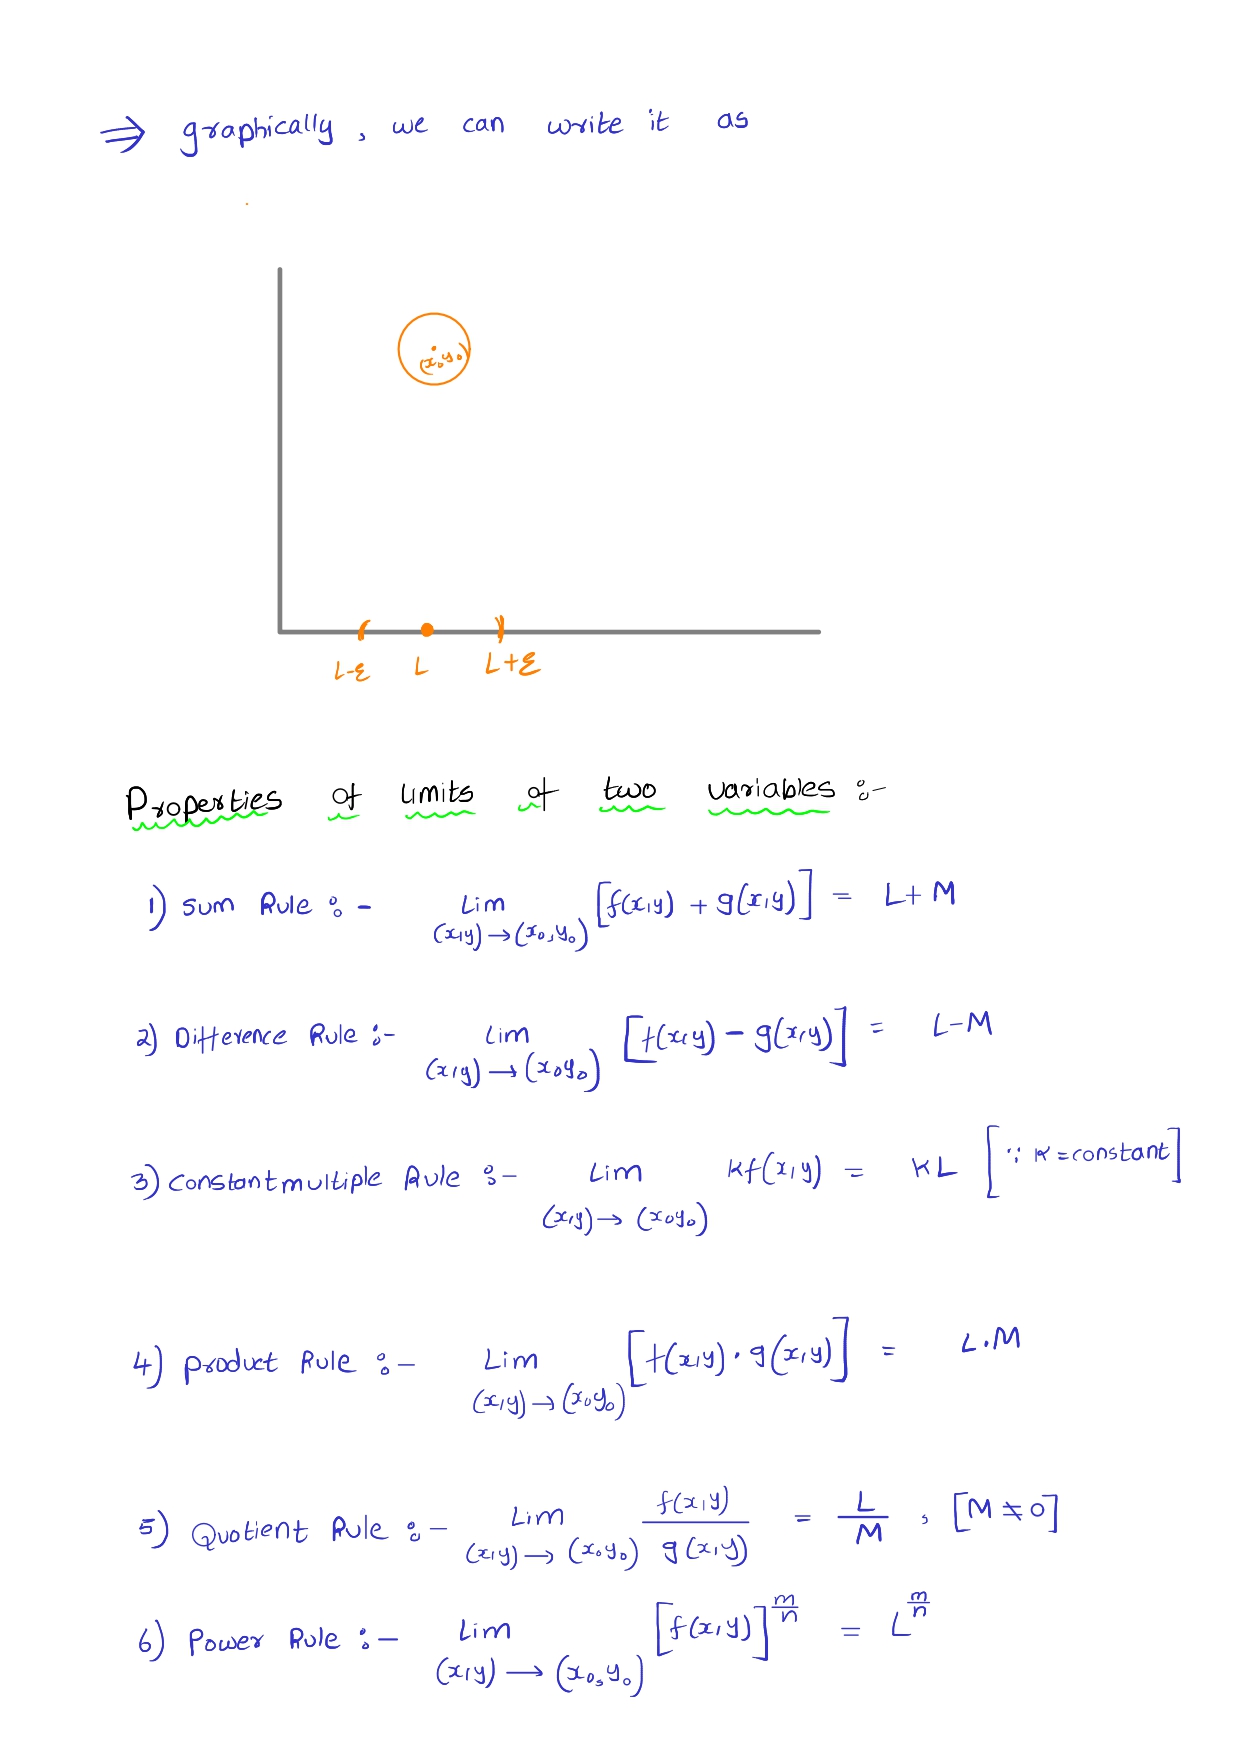 ⇒ graphically, we can write it as
(x₀y₀)
L-ε L L+ε
Properties of limits of two variables :-
1) Sum Rule :- Lim (x,y)→(x₀,y₀) [f(x,y) + g(x,y)] = L+M
2) Difference Rule :- Lim (x,y)→(x₀y₀) [f(x,y) - g(x,y)] = L-M
3) Constant multiple Rule :- Lim (x,y)→(x₀y₀) kf(x,y) = kL [∵ k=constant]
4) Product Rule :- Lim (x,y)→(x₀y₀) [f(x,y)·g(x,y)] = L.M
5) Quotient Rule :- Lim (x,y)→(x₀y₀) f(x,y)/g(x,y) = L/M , [M≠0]
6) Power Rule :- Lim (x,y)→(x₀,y₀) [f(x,y)]^(m/n) = L^(m/n)